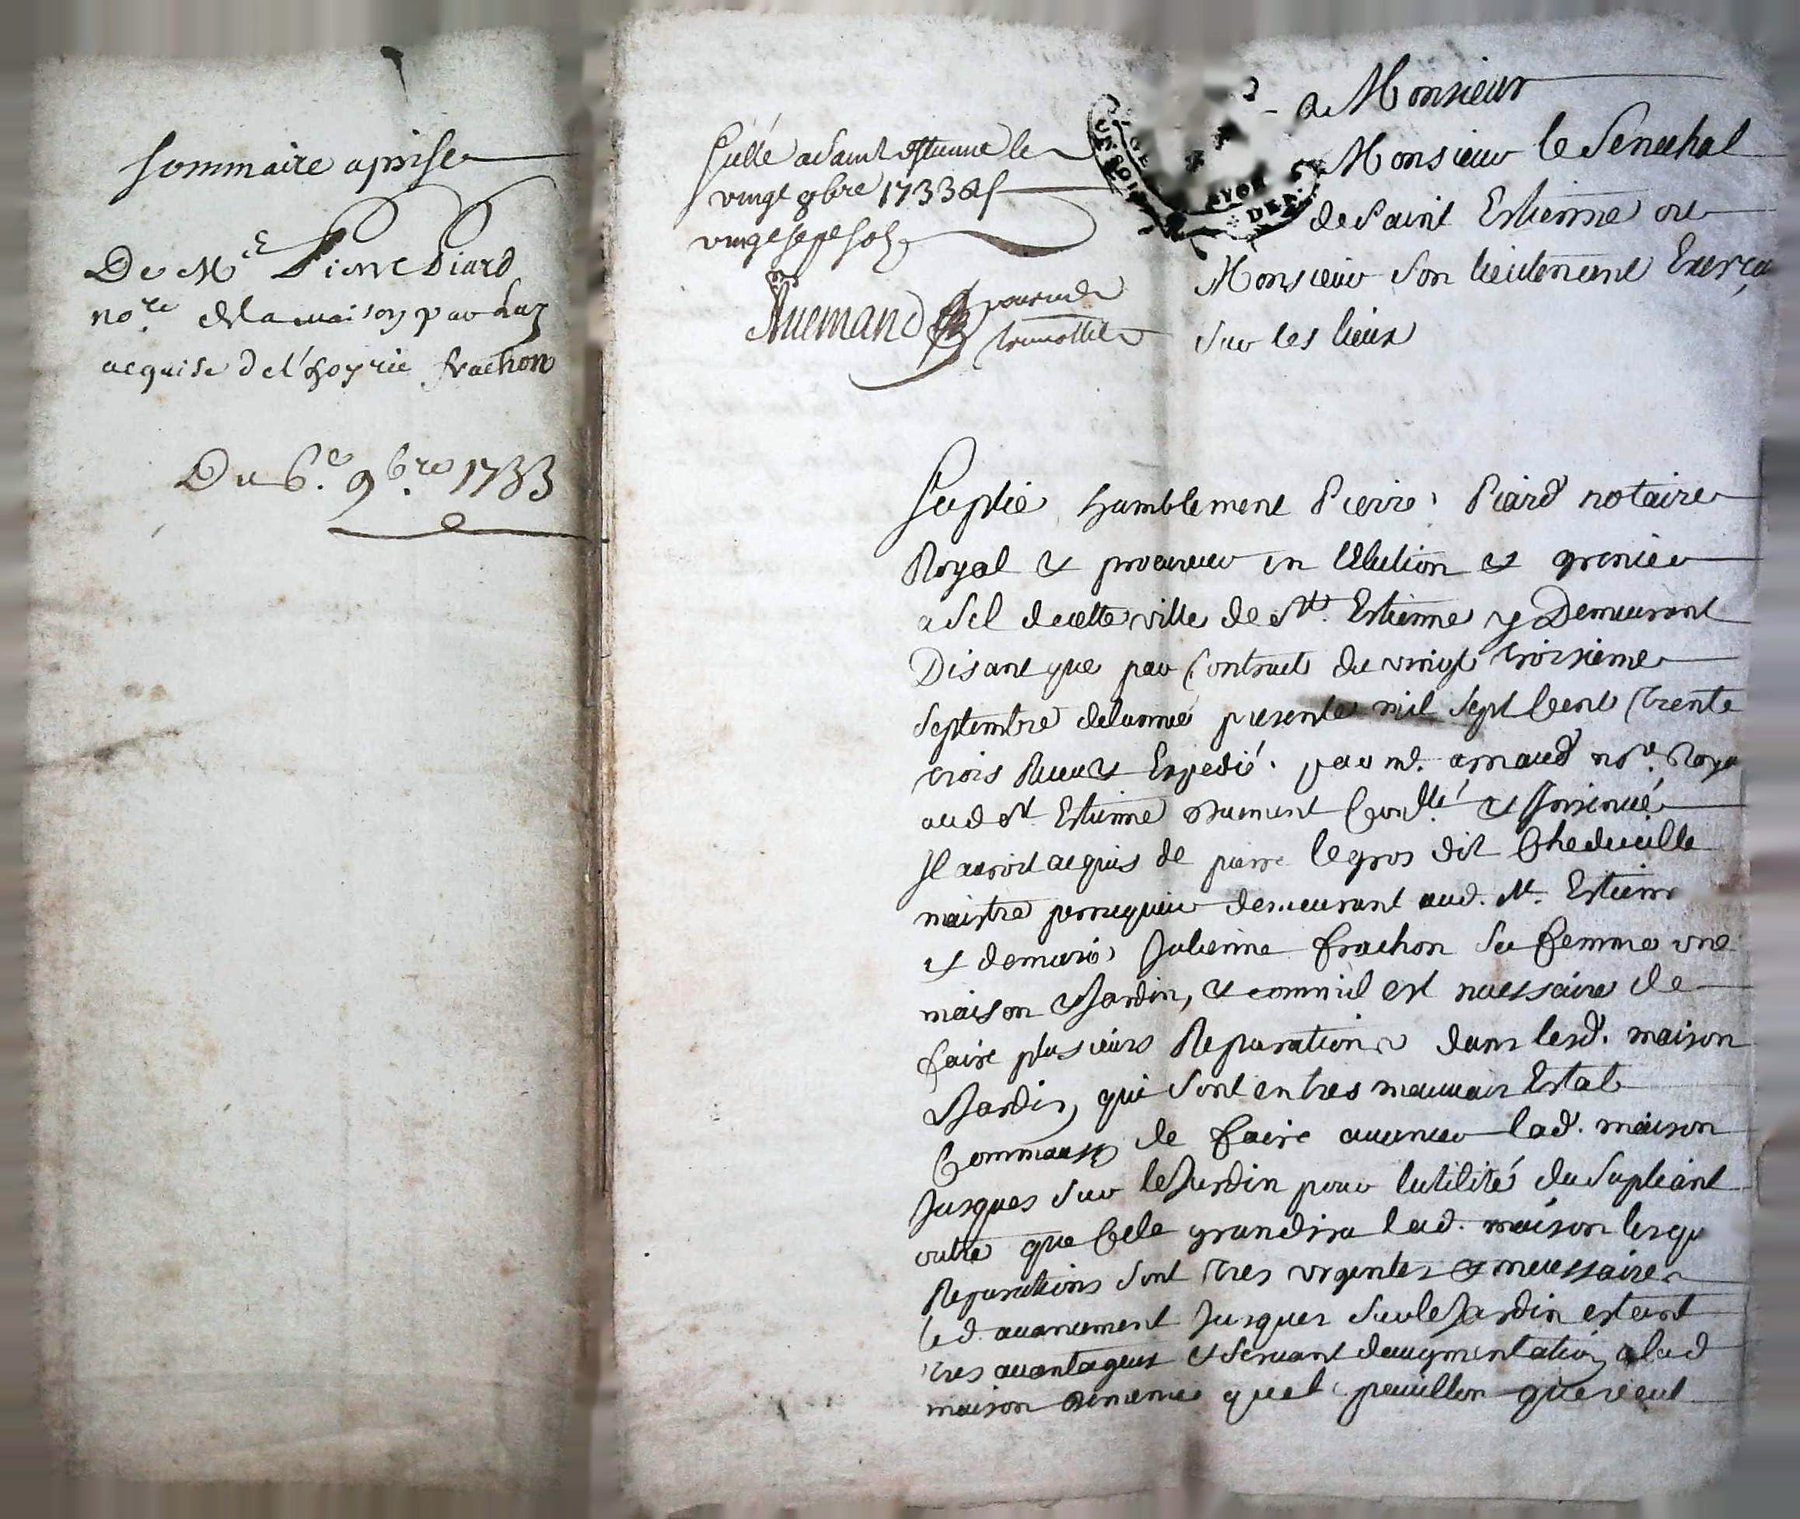 Sommaire aprise
De Me Pierre Piard
nore de la maison par luy
acquise de l'hoyrie frachon
Du 6e 9bre 1733
Sellé a Saint Estienne le
vingt 9bre 1733
vingt sept sols
A Monsieur
Monsieur le Senechal
de Saint Estienne ou
Monsieur son lieutenant
sur les lieux
Suplie humblement Pierre Piard notaire
Royal & procureur en l'Election & grenier
a sel de cette ville de St. Estienne y Demeurant
Disant que par Contract du vingt troisieme
Septembre de lannée presente mil sept Cent trente
trois Receu & Expedié par me. arnaud nore. Roya
aud St Estienne deument Conllé & Insinué
Il auroit acquis de pierre legros dit Chedeville
maistre perruquier demeurant aud. St. Estienne
& demarie Julienne frachon sa femme une
maison & Jardin, & comme il est necessaire de
faire plusieurs Reparations dans lesd. maison
& Jardin, qui sont en tres mauvais Estat
Comme aussy de faire avancer lad. maison
Jusques sur le Jardin pour lutilité du Supliant
outre que Cela grandira lad. maison lesqu
Reparations sont tres urgentes & necessaires
led. avancement Jusques sur le Jardin estant
tres avantageux & servant daugmentation a lad
maison de meme que le pavillon que veut